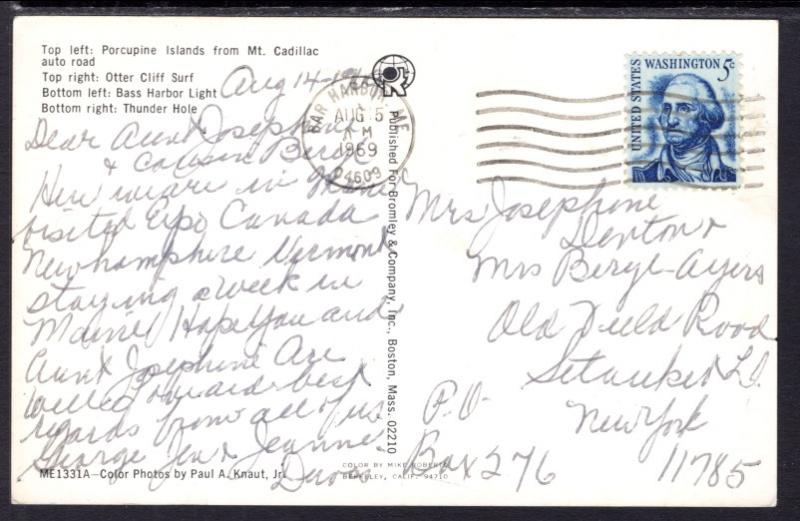 Top left: Porcupine Islands from Mt. Cadillac
auto road
Top right: Otter Cliff Surf
Bottom left: Bass Harbor Light
Bottom right: Thunder Hole
Aug 14-19
Dear Aunt Josephine
& Cousin
Here we are in Maine
visited Expo Canada
Newhampshire Vermont
staying a week in
Maine Hope you and
Aunt Josephine are
well regards best
regards from all of us
George Jen & Jeanne
ME1331A—Color Photos by Paul A. Knaut, Jr.
Published For Bromley & Company, Inc., Boston, Mass. 02210
COLOR BY MIKE ROBERTS
BERKELEY, CALIF. 94710
BAR HARBOR, ME.
AUG 15
AM
1969
04609
UNITED STATES
WASHINGTON 5c
Mrs Josephine
Denton &
Mrs Berge-Ayers
Old Field Road
Setauket L.I.
P.O. New York
Box 276 11785